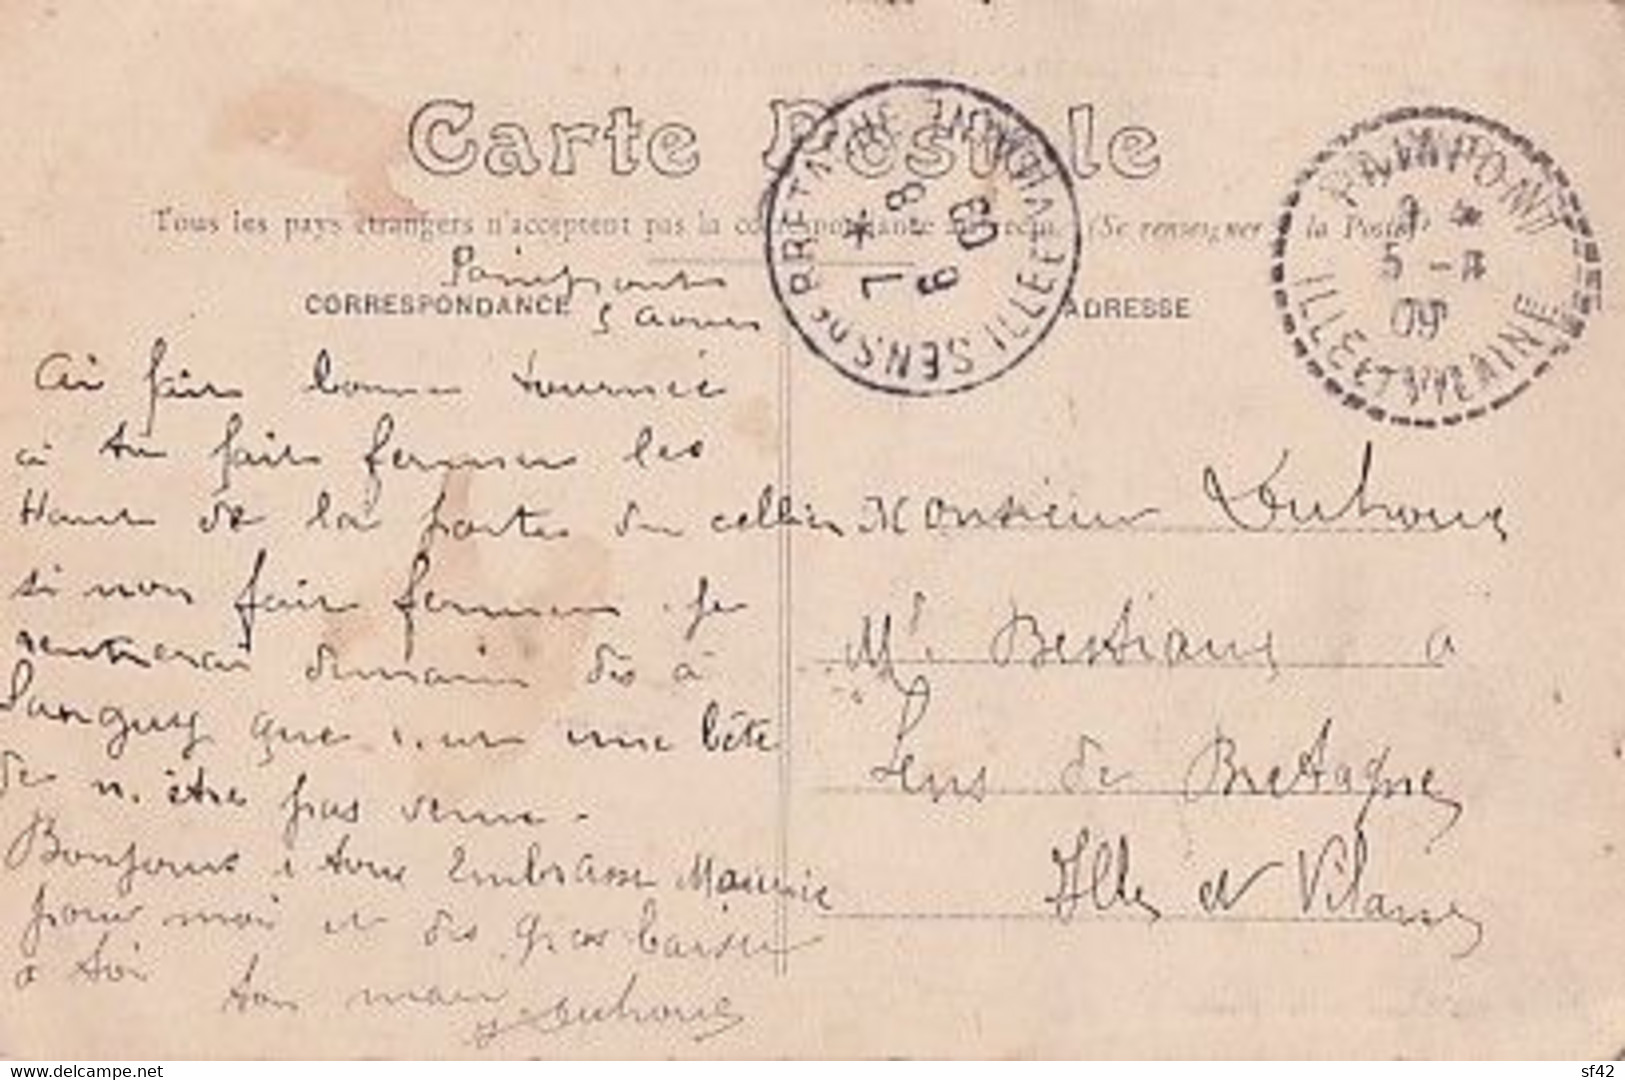 Carte Postale
Tous les pays étrangers n'acceptent pas la correspondance au recto. (Se renseigner à la Poste)
CORRESPONDANCE
ADRESSE
SENS DE BRETAGNE ILLE ET VILAINE
7 * 8
6 09
PAIMPONT
ILLE ET VILAINE
5 - 8
09
Paimpont
ai fais bonne tournée
à tu fait fermer les
Haut de la porte du cellier
si non fait fermer. je
rentrerai demain dès à
que une bête
de n'être pas venu.
Bonjour à tous Embrasse Maurice
pour moi et des gros baiser
a toi
ton mari
Monsieur
Md. Bestiaux a
Sens de Bretagne
Ille et Vilaine
www.delcampe.net
sf42